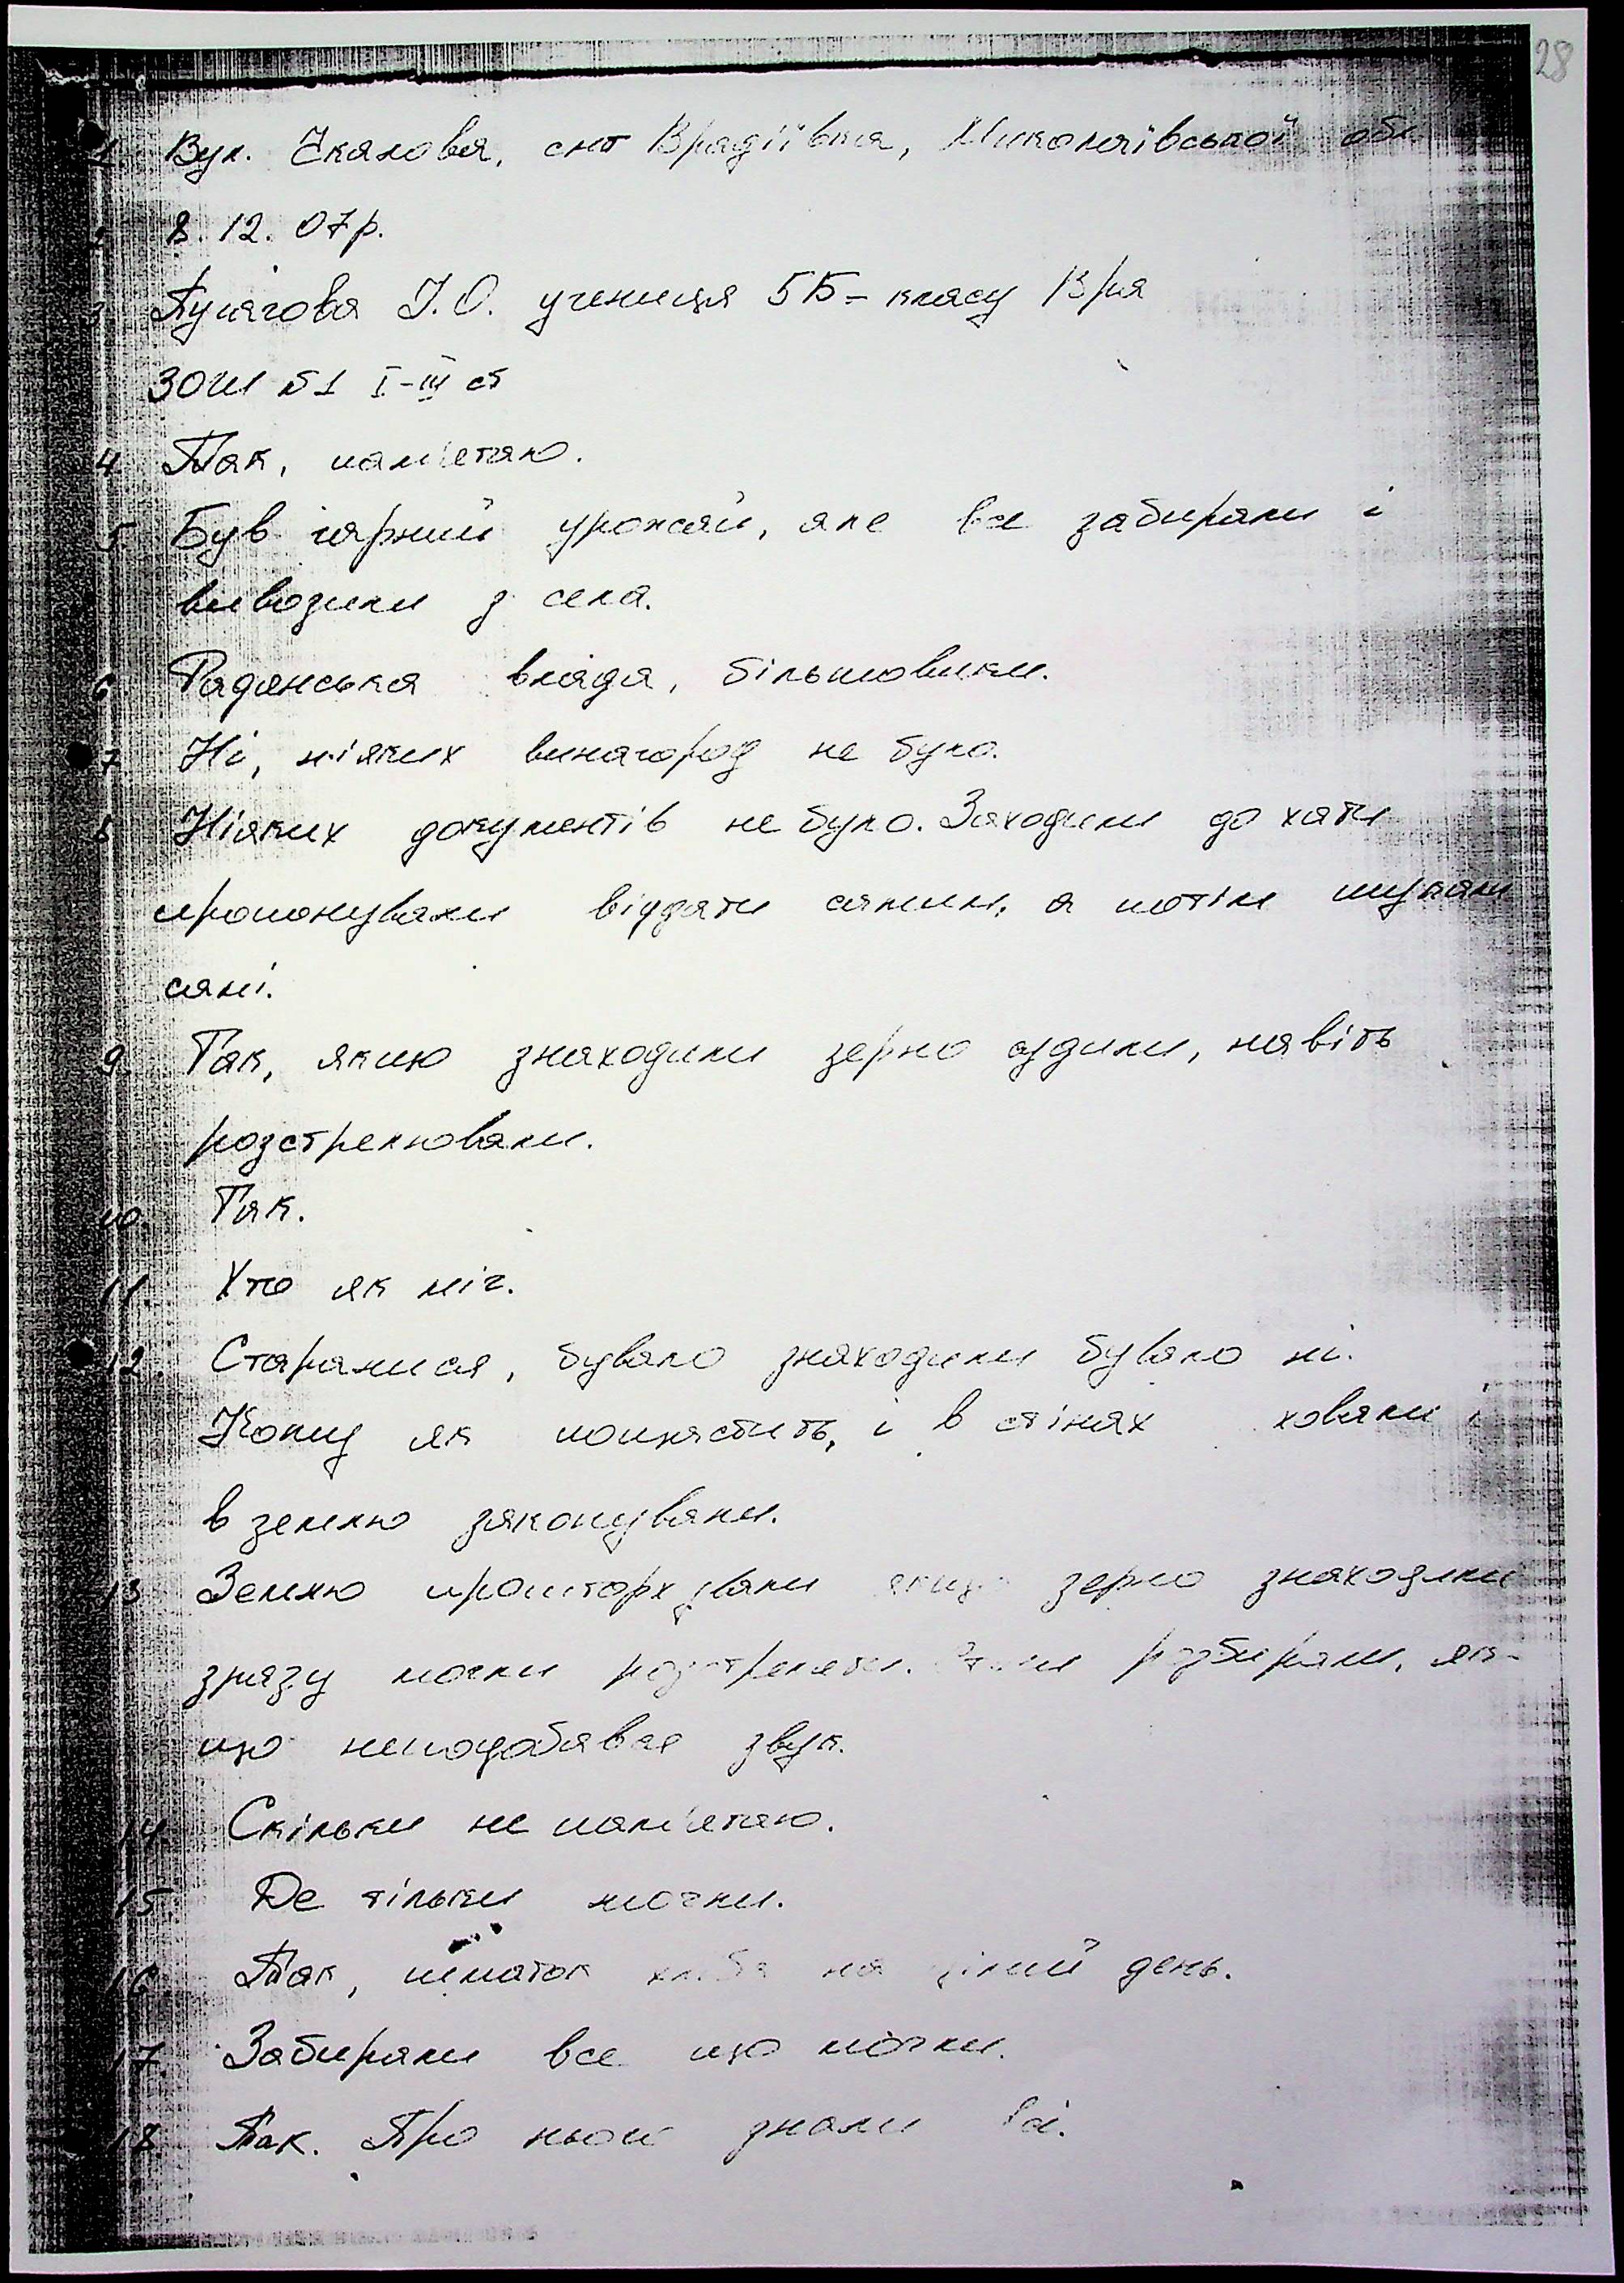 28
1. Вул. Чкалова, смт Врадіївка, Миколаївської обл.
2 8. 12. 07р.
3 І.О. учениця 5Б- класу Вра
ЗОШ №1 І-ІІІ ст
4 Так, пам'ятаю.
5. Був гарний урожай, але все забирали і
вивозили з села.
6 Радянська влада, більшовики.
7 Ні, ніяких винагород не було.
8 Ніяких документів не було. Заходили до хати
пропонували віддати самим, а потім шукали
самі.
9. Так, якщо знаходили зерно судили, навіть
розстрелювали.
10. Так.
11. Хто як міг.
12. Старалися, бувало знаходили бувало ні.
Кому як пощастить, і в стінах ховали і
в землю закопували.
13 Землю проштархували якщо зерно знаходили
зразу могли розстреляти. Стіни розбирали, як-
що неподобався звук.
14. Скільки не пам'ятаю.
15. Де тільки могли.
16 Так, шматок хліба на цілий день.
17. Забирали все що могли.
18 Так. Про нього знали всі.